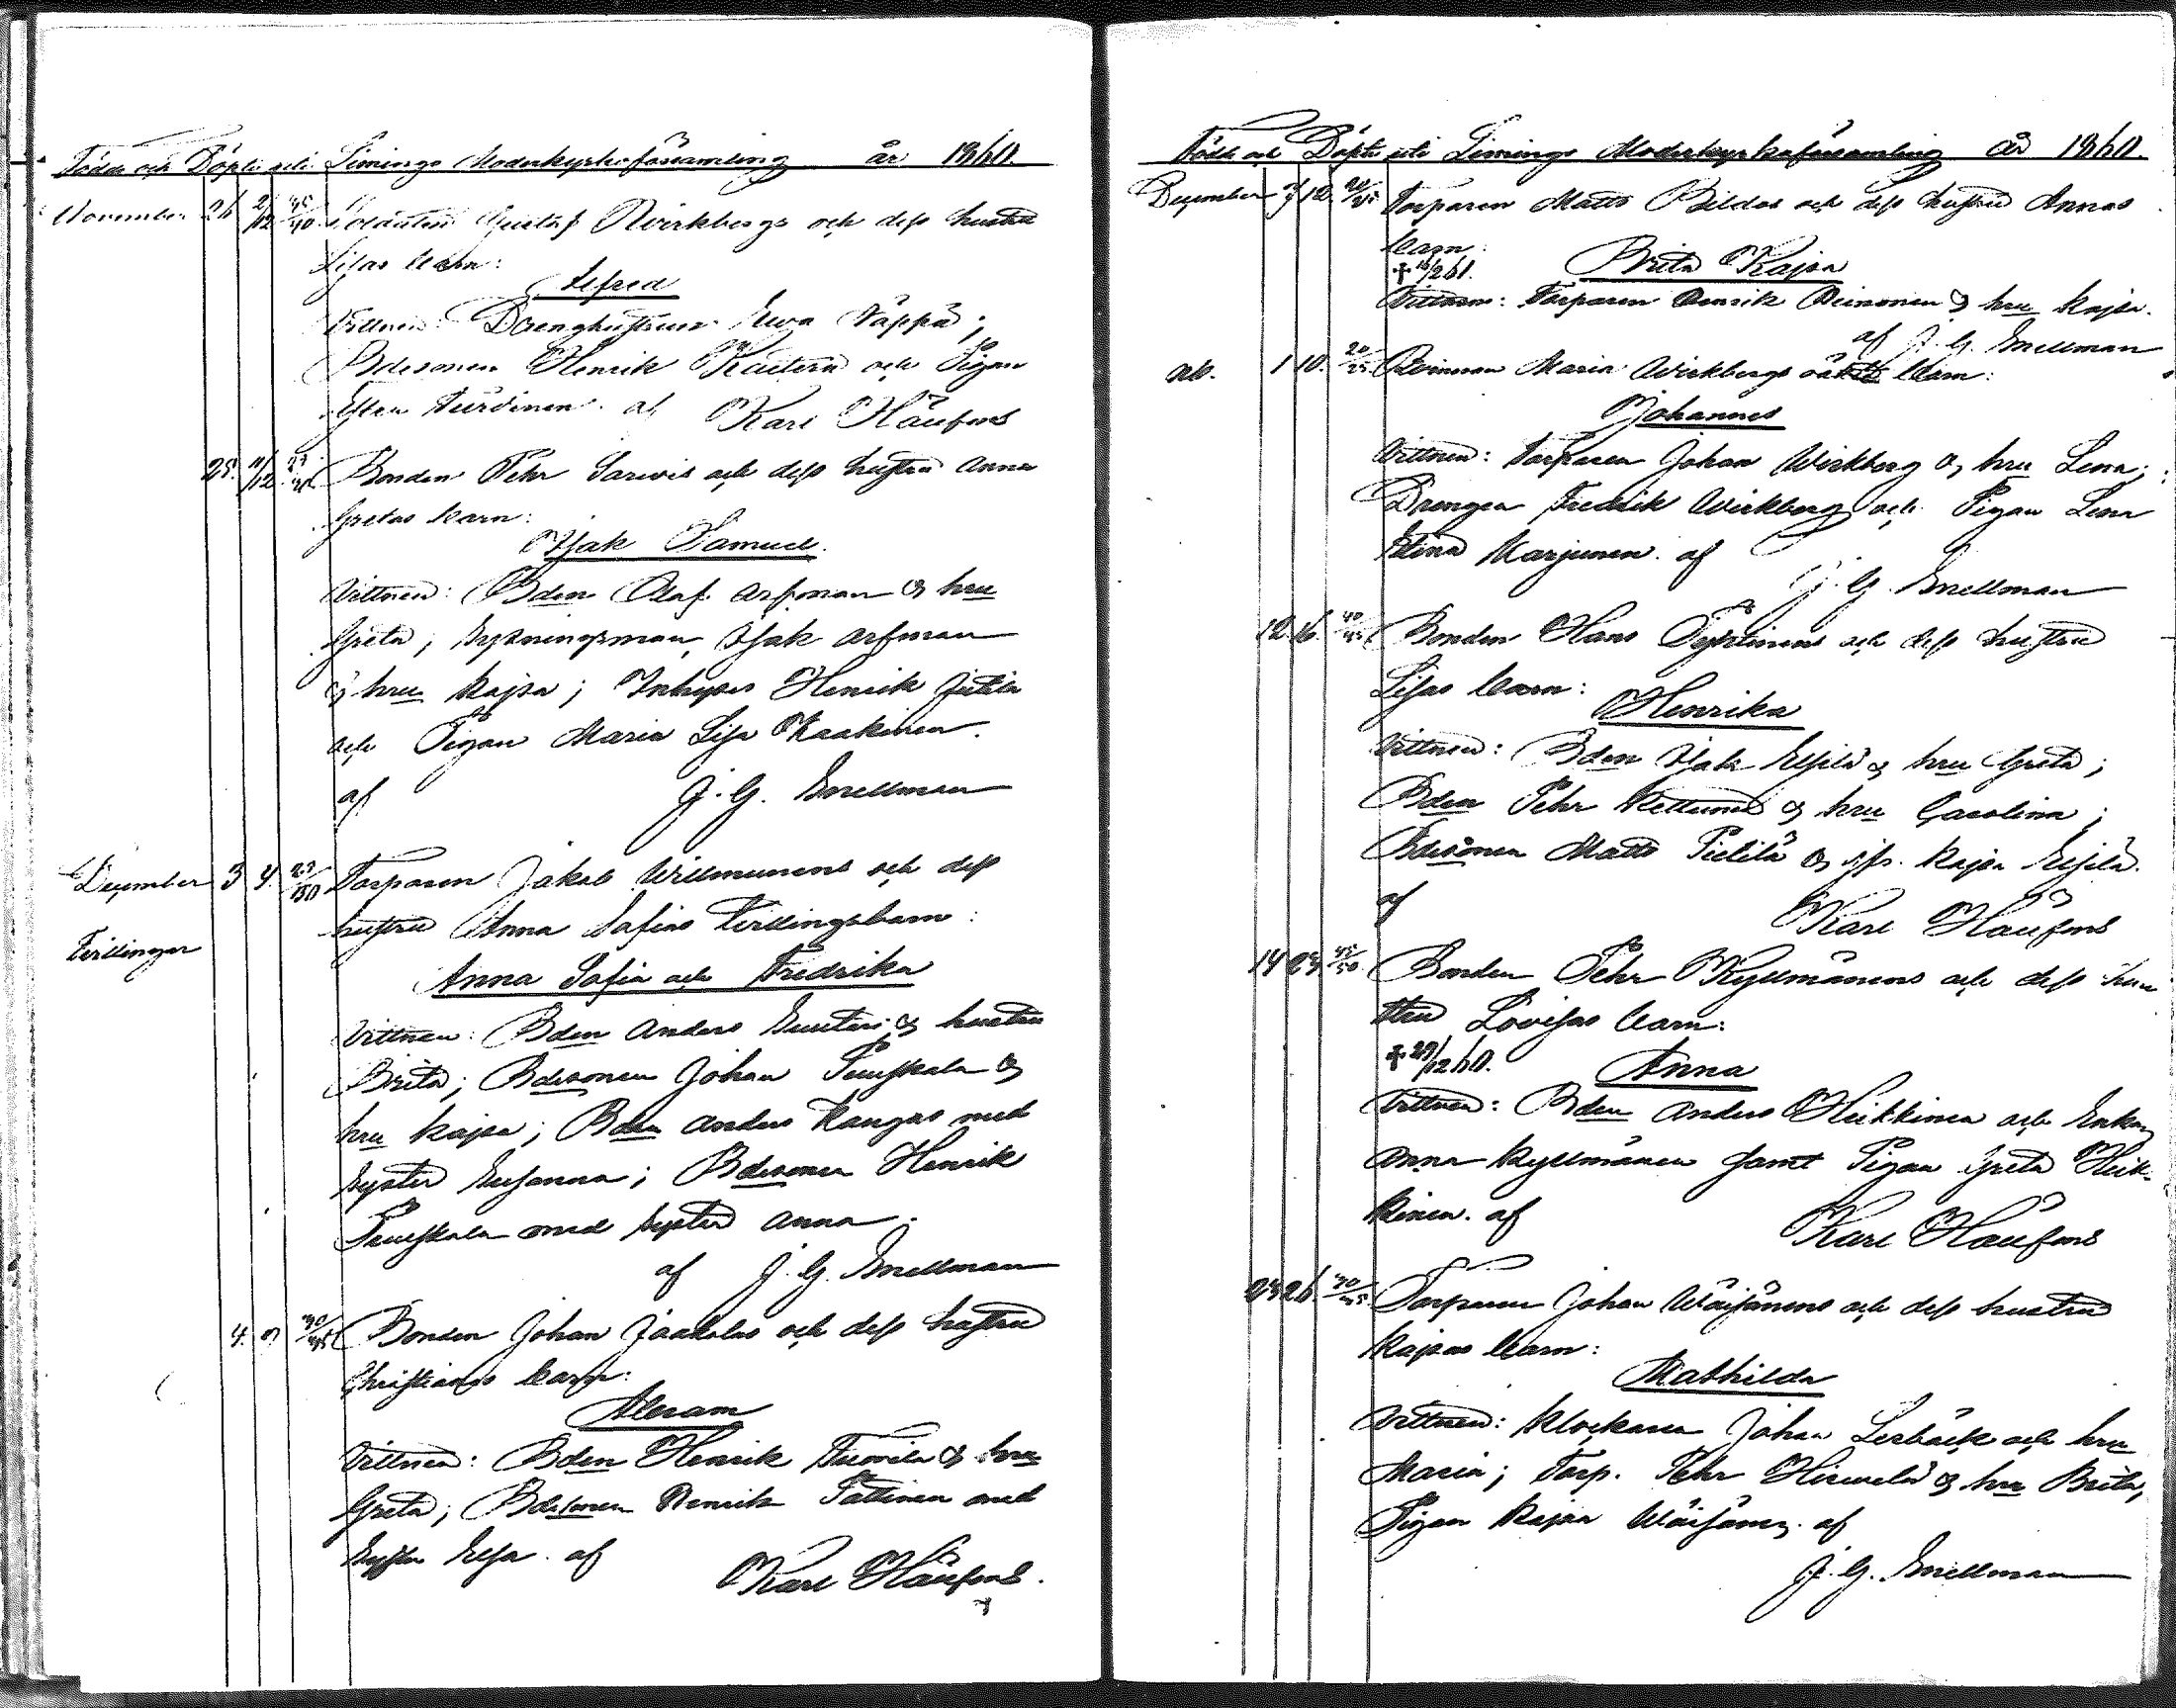 Födde och Döpte uti Limingo Moderkyrkoförsamling år 1860.
November 26 2/12 35/40 Soldaten Gustaf Wirkbergs och dess hustru
Lisas barn:
Alfred
Vittnen: Drenghustrun Ewa Näppä;
Bdesonen Henrik Kaitera och Pigan
af Karl Häufens
29. 11/12 Bonden Pehr Sarwis och dess hustru Anna
Gretas barn:
Isak Samuel.
Vittnen: Bden Olof Arfman & hru
Greta; Isak Arfman
& hru Kajsa; Inhyses Henrik Jutila
och Pigan Maria Lisa Kaakinen.
af J. G. Snellman
December 3 4. 25/30 Torparen Jakob Willmunens och dess
hustru Anna Sofias Tvillingsbarn:
Tvillingar
Anna Sofia och Fredrika
Vittnen: Bden Anders & hustru
Brita; Bdesonen Johan &
hru Kajsa; Bden Anders Kangas med
Syster Susanna; Bdesonen Henrik
med Syster Anna.
af J. G. Snellman
4. 9 30/35 Bonden Johan Jaakolas och dess hustru
Christianas barn:
Abram
Vittnen: Bden Henrik Tuomila & hru
Greta; Bdesonen Henrik Pättinen med
Syster Elsa. af Karl Häufens.
Födde och Döpte uti Limingo Moderkyrkoförsamling år 1860.
December 9 12. 20/25 Torparen Matts Pildas och dess hustru Annas
barn:
† 16/2 61. Brita Kajsa
Vittnen: Torparen Henrik Heinonen & hru Kajsa.
af J. G. Snellman
ab. 1 10. 20/25 Qvinnan Maria Wirkbergs oäkta barn:
Johannes
Vittnen: Torparen Johan Wirkberg & hru Lena;
Drengen Fredrik Wirkberg och Pigan Lena
Stina Karjunen. af
J. G. Snellman
12. 16. 40/45 Bonden Hans Tyrtinens och dess hustru
Lisas barn:
Henrika
Vittnen: Bden Isak Eljilä & hru Greta;
Bden Pehr Kettunen & hru Carolina;
Bdesonen Matts Pietilä & jfr. Kajsa Eljilä.
af Karl Häufens
14 23 45/50 Bonden Pehr Kyllmänens och dess hu-
stru Lovisas barn:
† 29/12 60. Anna
Vittnen: Bden Anders Heikkinen och Enkan
Anna Kyllmänen samt Pigan Greta Heik-
kinen. af Karl Häufens
23 26. 30/35 Torparen Johan Wäisänens och dess hustru
Kajsas barn:
Mathilda
Vittnen: Klockaren Johan Lerbäck och hru
Maria; Torp. Pehr Hirwelä & hru Brita,
Pigan Kajsa Wäisänen. af
J. G. Snellman